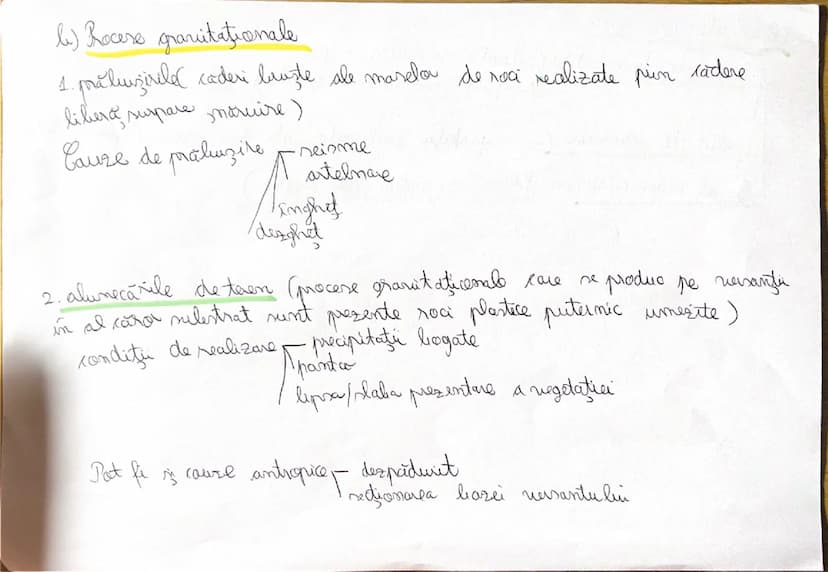 b) Procese gravitaționale
1. prăbușirile (căderi bruște ale maselor de roci realizate prin cădere
liberă, surpare, năruire)
Cauze de prăbușire seisme
înghеț
dezgheț
2. alunecările de teren (procese gravitaționale care se produc pe versanții
în al căror substrat sunt prezente roci plastice puternic umezite)
condiții de realizare precipitații bogate
panta
lipsa/slaba prezentare a vegetației
Pot fi și cauze antropice despădurit
secționarea bazei versantului